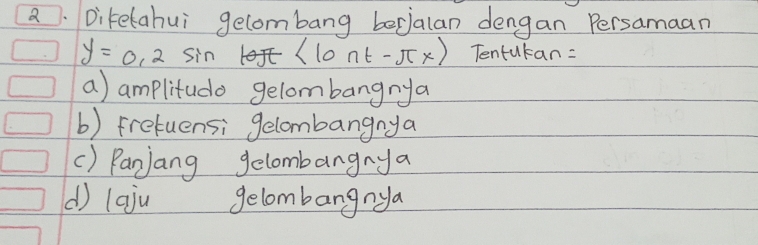 2. Diketahui gelombang berjalan dengan Persamaan
y = 0,2 sin (10 πt - πx) Tentukan =
a) amplitudo gelombangnya
b) Frekuensi gelombangnya
c) Panjang gelombangnya
d) laju gelombangnya